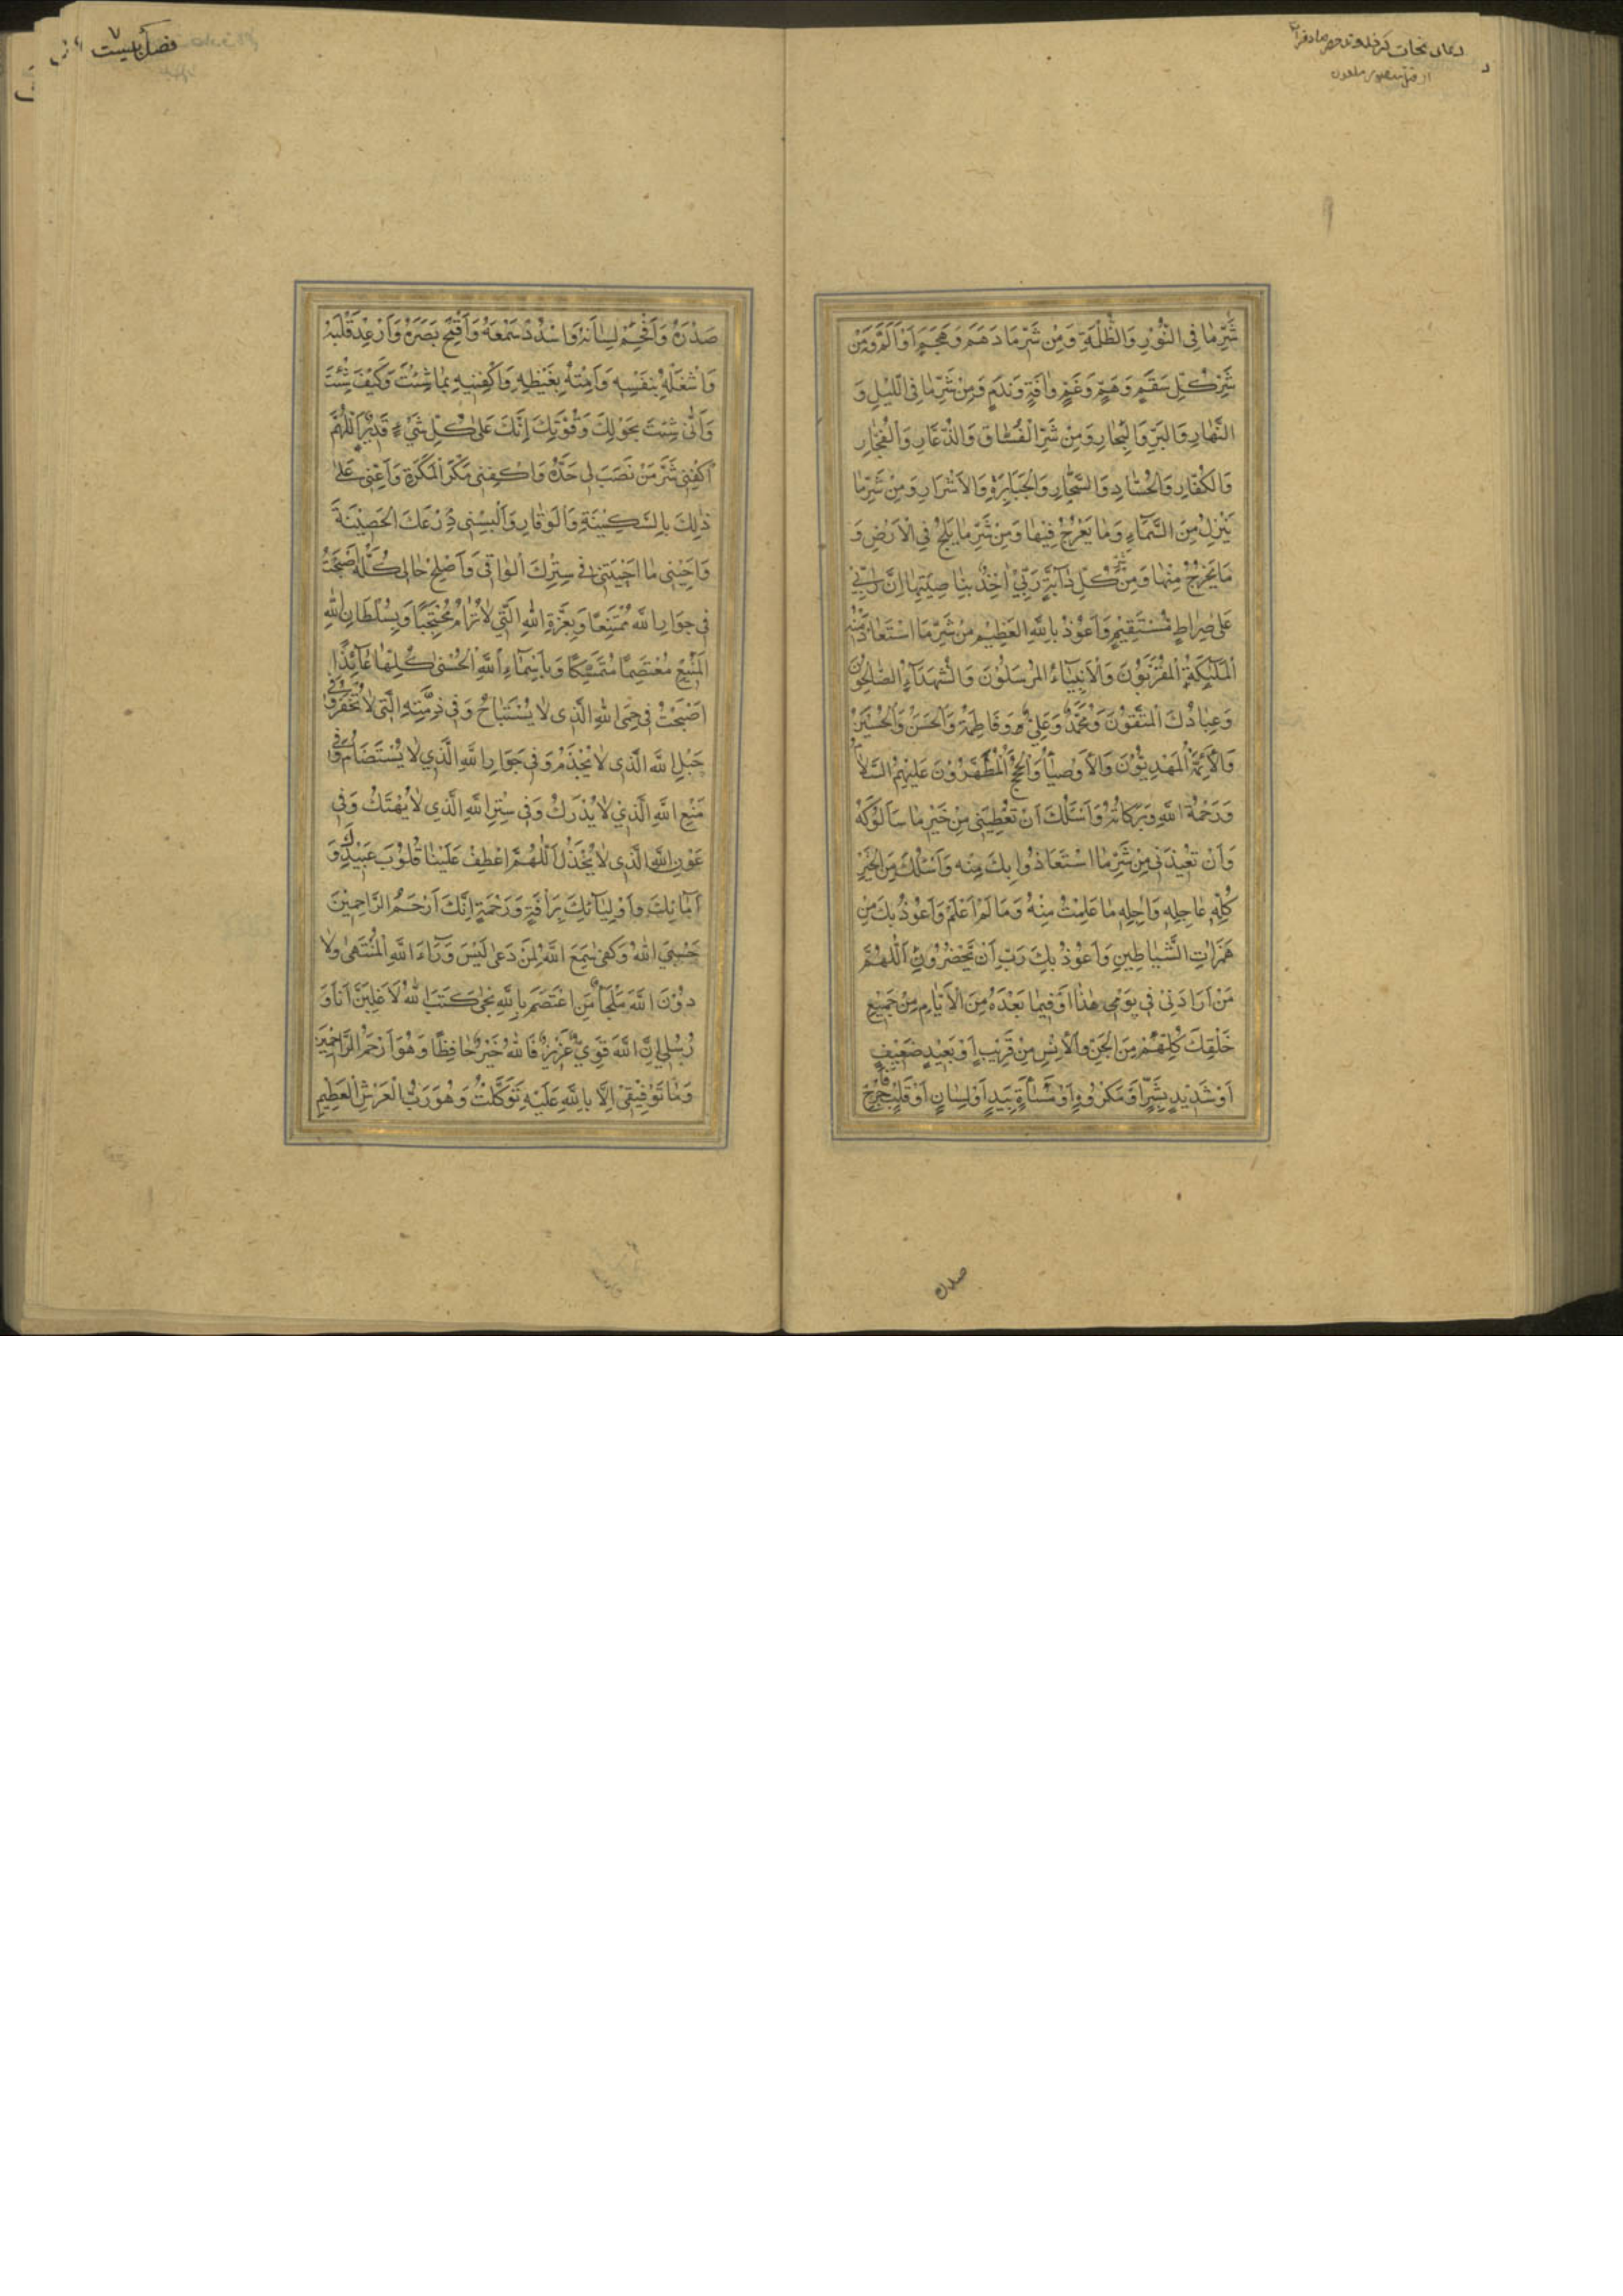 شَرِّ مَا فِى النُّوْرِ وَالظُّلْمَةِ وَمِنْ شَرِّ مَا دَهَمَ وَهَجَمَ اَوْ اَلَمَّ وَمِنْ
شَرِّ كُلِّ سَقَمٍ وَهَمٍّ وَغَمٍّ وَاٰفَةٍ وَنَدَمٍ وَمِنْ شَرِّ مَا فِى اللَّيْلِ وَ
النَّهَارِ وَالْبَرِّ وَالْبِحَارِ وَمِنْ شَرِّ الْفُسَّاقِ وَالذُّعَّارِ وَالْفُجَّارِ
وَالْكُفَّارِ وَالْحُسَّادِ وَالسُّحَّارِ وَالْجَبَابِرَةِ وَالْاَشْرَارِ وَمِنْ شَرِّ مَا
يَنْزِلُ مِنَ السَّمَاءِ وَمَا يَعْرُجُ فِيْهَا وَمِنْ شَرِّ مَا يَلِجُ فِى الْاَرْضِ وَ
مَا يَخْرُجُ مِنْهَا وَمِنْ شَرِّ كُلِّ دَابَّةٍ رَبِّيْ اٰخِذٌ بِنَاصِيَتِهَا اِنَّ رَبِّيْ
عَلٰى صِرَاطٍ مُسْتَقِيْمٍ وَاَعُوْذُ بِاللّٰهِ الْعَظِيْمِ مِنْ شَرِّ مَا اسْتَعَاذَ مِنْهُ
الْمَلٰئِكَةُ الْمُقَرَّبُوْنَ وَالْاَنْبِيَاءُ الْمُرْسَلُوْنَ وَالشُّهَدَاءُ الصَّالِحُوْنَ
وَعِبَادُكَ الْمُتَّقُوْنَ وَمُحَمَّدٌ وَعَلِيٌّ وَفَاطِمَةُ وَالْحَسَنُ وَالْحُسَيْنُ
وَالْاَئِمَّةُ الْمَهْدِيُّوْنَ وَالْاَوْصِيَاءُ وَالْحُجَجُ الْمُطَهَّرُوْنَ عَلَيْهِمُ السَّلَامُ
وَرَحْمَةُ اللّٰهِ وَبَرَكَاتُهُ وَاَسْئَلُكَ اَنْ تُعْطِيَنِى مِنْ خَيْرِ مَا سَاَلُوْكَهُ
وَاَنْ تُعِيْذَنِى مِنْ شَرِّ مَا اسْتَعَاذُوا بِكَ مِنْهُ وَاَسْئَلُكَ مِنَ الْخَيْرِ
كُلِّهِ عَاجِلِهِ وَاٰجِلِهِ مَا عَلِمْتُ مِنْهُ وَمَا لَمْ اَعْلَمْ وَاَعُوْذُ بِكَ مِنْ
هَمَزَاتِ الشَّيَاطِيْنِ وَاَعُوْذُ بِكَ رَبِّ اَنْ يَحْضُرُوْنِ اَللّٰهُمَّ
مَنْ اَرَادَنِيْ فِى يَوْمِى هٰذَا اَوْ فِيْمَا بَعْدَهُ مِنَ الْاَيَّامِ مِنْ جَمِيْعِ
خَلْقِكَ كُلِّهِمْ مِنَ الْجِنِّ وَالْاِنْسِ مِنْ قَرِيْبٍ اَوْ بَعِيْدٍ ضَعِيْفٍ
اَوْ شَدِيْدٍ بِشَرٍّ اَوْ مَكْرُوْهٍ اَوْ مَسَاءَةٍ بِيَدٍ اَوْ لِسَانٍ اَوْ قَلْبٍ فَاَحْرِجْ
صدره
فصل بیست
صَدْرَهُ وَاَفْحِمْ لِسَانَهُ وَاسْدُدْ سَمْعَهُ وَاَقْمِحْ بَصَرَهُ وَاَرْعِدْ قَلْبَهُ
وَاشْغَلْهُ بِنَفْسِهِ وَاَمِتْهُ بِغَيْظِهِ وَاكْفِنِيْهِ بِمَا شِئْتَ وَكَيْفَ شِئْتَ
وَاَنّٰى شِئْتَ بِحَوْلِكَ وَقُوَّتِكَ اِنَّكَ عَلٰى كُلِّ شَىْءٍ قَدِيْرٌ اَللّٰهُمَّ
اكْفِنِى شَرَّ مَنْ نَصَبَ لِى حَدَّهُ وَاكْفِنِى مَكْرَ الْمَكَرَةِ وَاَعِنِّى عَلٰى
ذٰلِكَ بِالسَّكِيْنَةِ وَالْوَقَارِ وَاَلْبِسْنِى دِرْعَكَ الْحَصِيْنَةَ
وَاَحْيِنِى مَا اَحْيَيْتَنِى فِى سِتْرِكَ الْوَاقِى وَاَصْلِحْ حَالِى كُلَّهُ اَصْبَحْتُ
فِى جِوَارِ اللّٰهِ مُمْتَنِعًا وَبِعِزَّةِ اللّٰهِ الَّتِى لَا تُرَامُ مُحْتَجِبًا وَبِسُلْطَانِ اللّٰهِ
الْمَنِيْعِ مُعْتَصِمًا مُتَمَسِّكًا وَبِاَسْمَاءِ اللّٰهِ الْحُسْنٰى كُلِّهَا عَائِذًا
اَصْبَحْتُ فِى حِمَى اللّٰهِ الَّذِى لَا يُسْتَبَاحُ وَفِى ذِمَّتِهِ الَّتِى لَا تُخْفَرُ وَفِى
حَبْلِ اللّٰهِ الَّذِى لَا يُجْذَمُ وَفِى جِوَارِ اللّٰهِ الَّذِي لَا يُسْتَضَامُ وَفِى
مَنْعِ اللّٰهِ الَّذِيْ لَا يُدْرَكُ وَفِى سِتْرِ اللّٰهِ الَّذِى لَا يُهْتَكُ وَفِى
عَوْنِ اللّٰهِ الَّذِى لَا يُخْذَلُ اَللّٰهُمَّ اعْطِفْ عَلَيْنَا قُلُوْبَ عَبِيْدِكَ وَ
اِمَائِكَ وَاَوْلِيَائِكَ بِرَاْفَةٍ وَرَحْمَةٍ اِنَّكَ اَرْحَمُ الرَّاحِمِيْنَ
حَسْبِيَ اللّٰهُ وَكَفٰى سَمِعَ اللّٰهُ لِمَنْ دَعٰى لَيْسَ وَرَاءَ اللّٰهِ الْمُنْتَهٰى وَلَا
دُوْنَ اللّٰهِ مَلْجَأٌ مَنِ اعْتَصَمَ بِاللّٰهِ نَجٰى كَتَبَ اللّٰهُ لَاَغْلِبَنَّ اَنَا وَ
رُسُلِيْ اِنَّ اللّٰهَ قَوِيٌّ عَزِيْزٌ فَاللّٰهُ خَيْرٌ حَافِظًا وَهُوَ اَرْحَمُ الرَّاحِمِيْنَ
وَمَا تَوْفِيْقِيْ اِلَّا بِاللّٰهِ عَلَيْهِ تَوَكَّلْتُ وَهُوَ رَبُّ الْعَرْشِ الْعَظِيْمِ